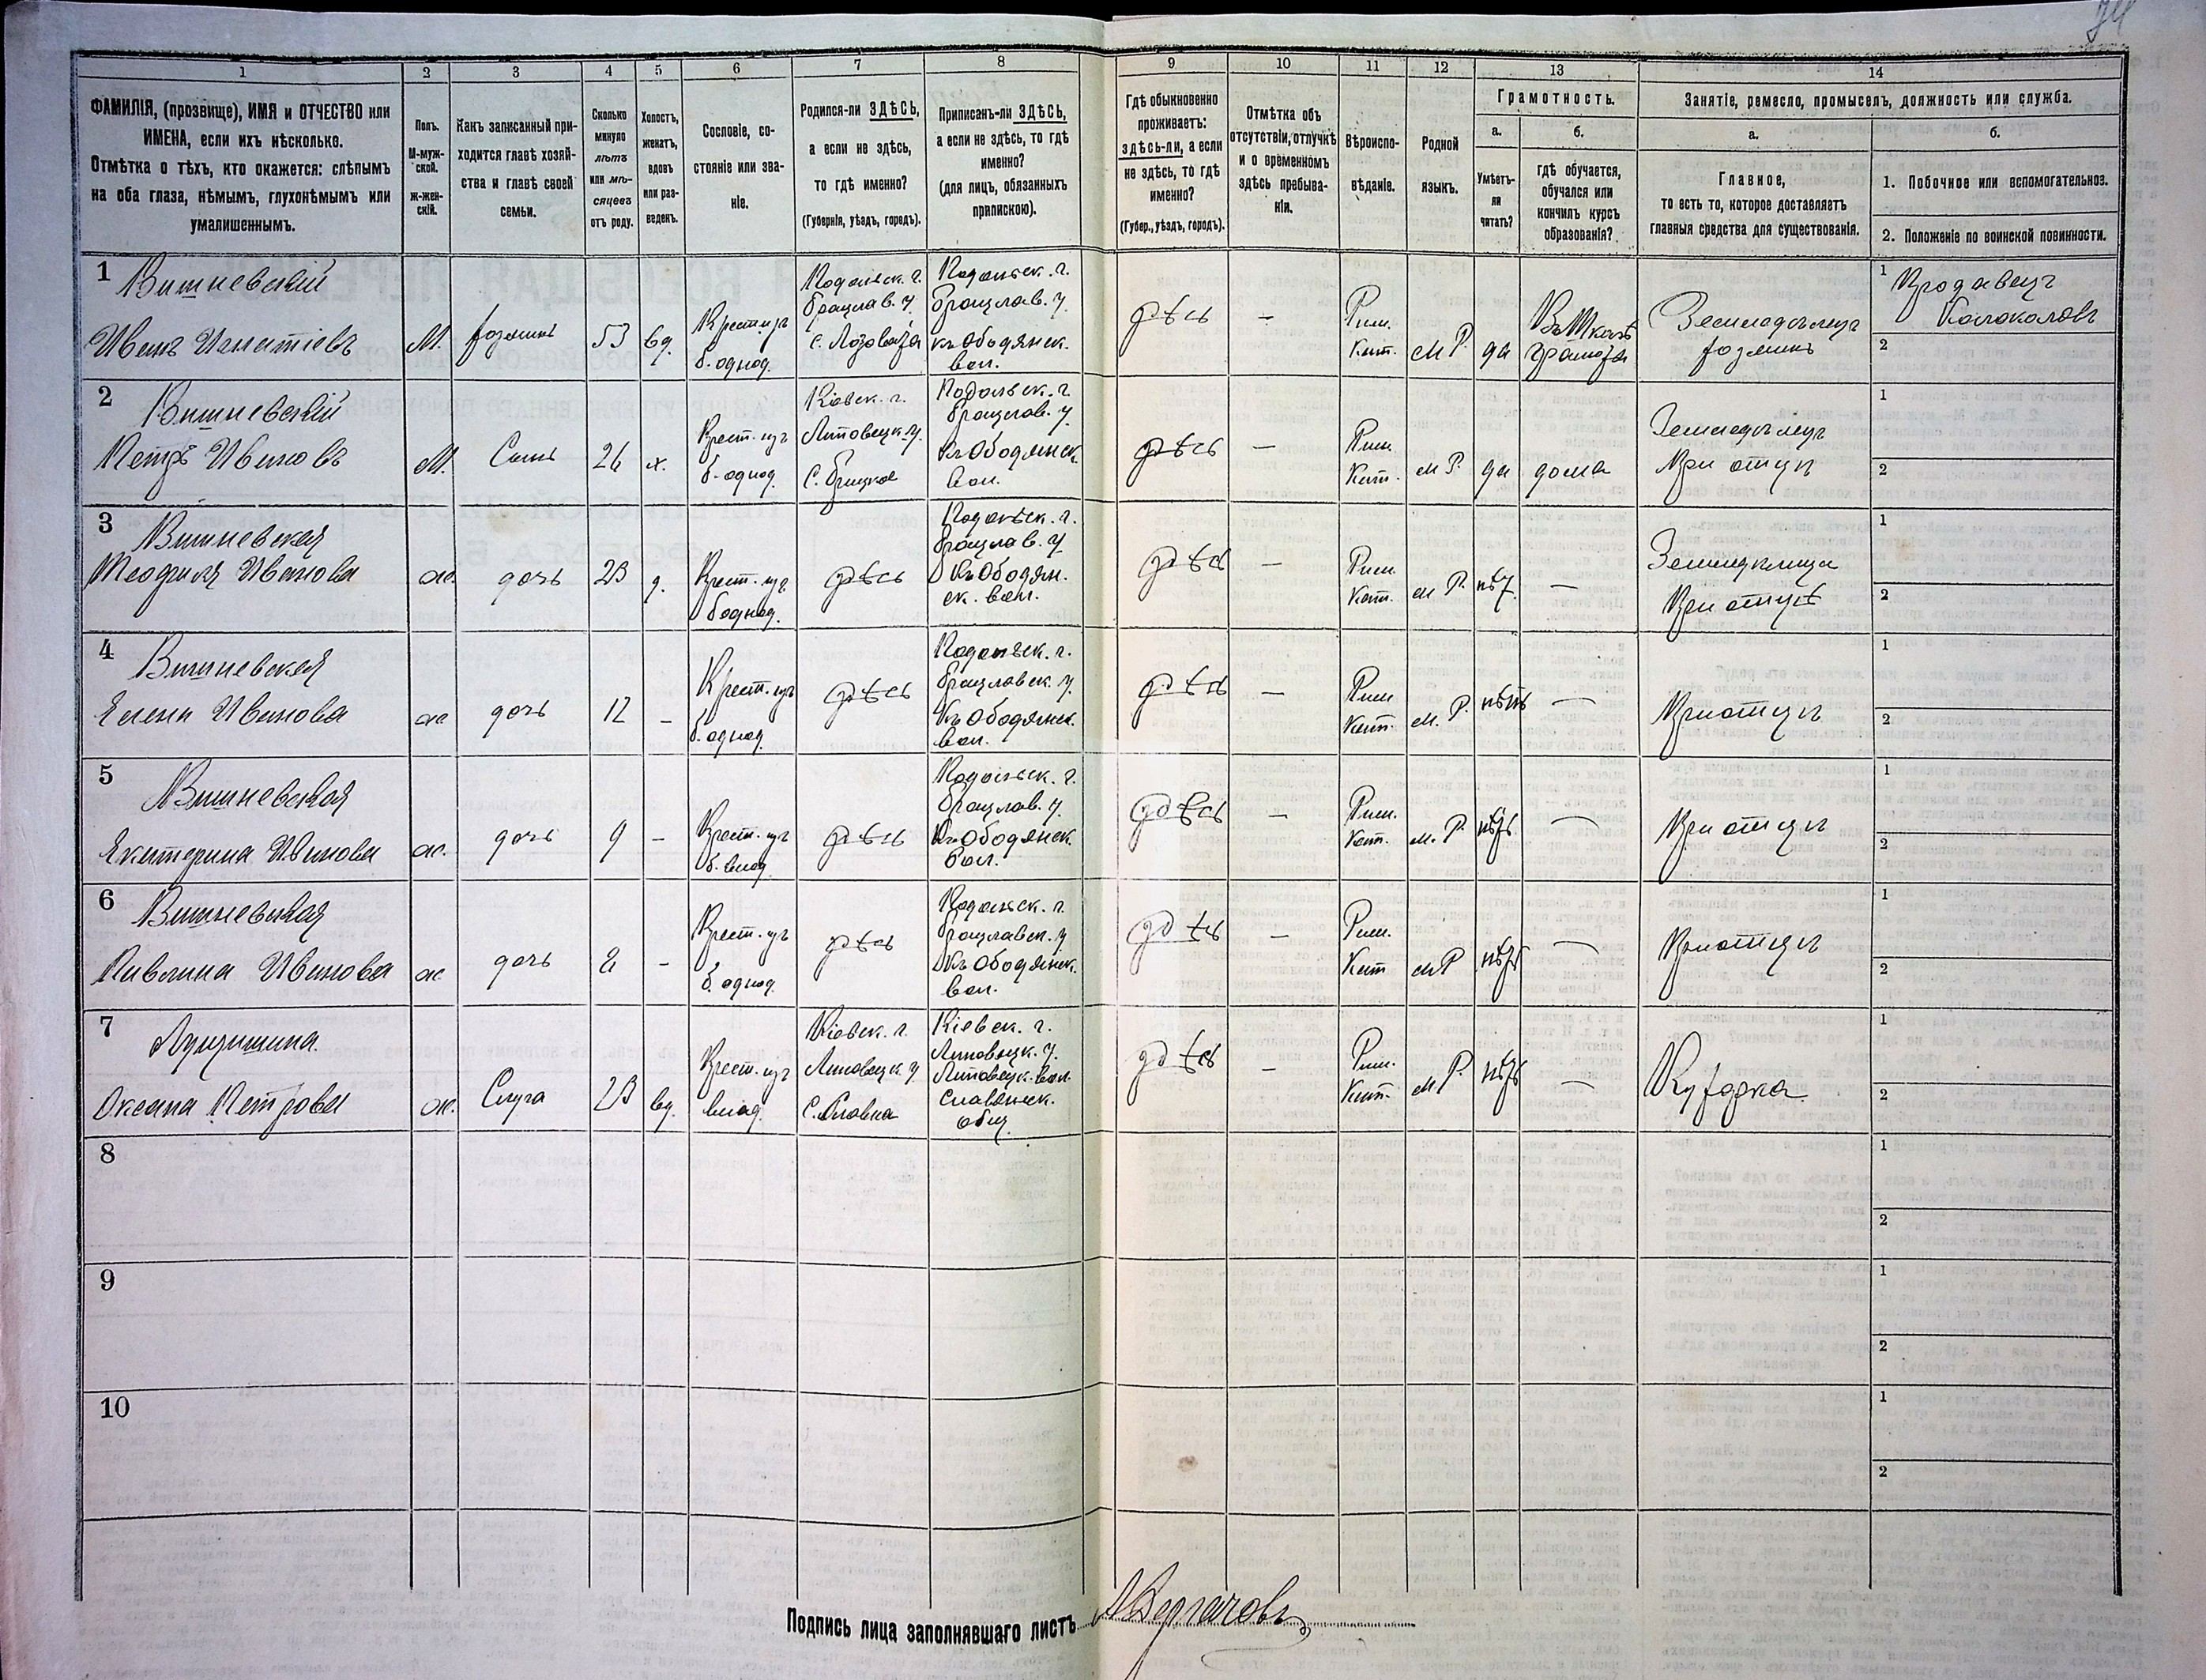 1
2
3
4
5
6
7
8
9
10
11
12
13
14
ФАМИЛІЯ, (прозвище), ИМЯ и ОТЧЕСТВО или
ИМЕНА, если ихъ нѣсколько.
Отмѣтка о тѣхъ, кто окажется: слѣпымъ
на оба глаза, нѣмымъ, глухонѣмымъ или
умалишеннымъ.
Полъ.
М-муж-
ской.
ж-жен-
скій.
Какъ записанный при-
ходится главѣ хозяй-
ства и главѣ своей
семьи.
Сколько
минуло
лѣтъ
или мѣ-
сяцевъ
отъ роду.
Холостъ,
женатъ,
вдовъ
или раз-
веденъ.
Сословіе, со-
стояніе или зва-
ніе.
Родился-ли ЗДѢСЬ,
а если не здѣсь,
то гдѣ именно?
(Губернія, уѣздъ, городъ).
Приписанъ-ли ЗДѢСЬ,
а если не здѣсь, то гдѣ
именно?
(для лицъ, обязанныхъ
припискою).
Гдѣ обыкновенно
проживаетъ:
здѣсь-ли, а если
не здѣсь, то гдѣ
именно?
(Губер., уѣздъ, городъ).
Отмѣтка объ
отсутствіи, отлучкѣ
и о временномъ
здѣсь пребыва-
ніи.
Вѣроиспо-
вѣданіе.
Родной
языкъ.
Грамотность.
а.
б.
Умѣетъ-
ли
читать?
гдѣ обучается,
обучался или
кончилъ курсъ
образованія?
Занятіе, ремесло, промыселъ, должность или служба.
а.
б.
Главное,
то есть то, которое доставляетъ
главныя средства для существованія.
1. Побочное или вспомогательное.
2. Положеніе по воинской повинности.
1
Вишневскій
Иванъ Игнатіевъ
М.
хозяинъ
53
вд.
Крест. изъ
б. однод.
Подольск. г.
Брацлав. у
с. Лозовата
Подольск. г.
Брацлав. у.
къ Ободянск.
вол.
здѣсь
–
Рим.
Кат.
М Р.
да
Въ Школѣ
грамоты
Земледѣлецъ
хозяинъ
1
2
2
Вишневскій
Петръ Ивановъ
М.
Сынъ
26
х.
Крест. изъ
б. однод.
Кіевск. г.
Липовецк. у.
Подольск. г.
Брацлав. у
Къ Ободянск.
вол.
здѣсь
–
Рим.
Кат.
М Р.
да
дома
Земледѣлецъ
При отцѣ
1
2
3
Вишневская
Теофиля Иванова
ж.
дочь
23
д.
Крест. изъ
б. однод.
здѣсь
Подольск. г.
Брацлав. у
Къ Ободян.
ск. вол.
здѣсь
–
Рим.
Кат.
М Р.
нѣт.
–
При отцѣ
1
2
4
Вишневская
Елена Иванова
ж
дочь
12
–
Крест. изъ
б. однод.
здѣсь
Подольск. г.
Брацлавск. у.
Къ Ободянск.
вол.
здѣсь
–
Рим
Кат.
М. Р.
нѣтъ
–
При отцѣ
1
2
5
Вишневская
Екатерина Иванова
ж.
дочь
9
–
Крест. изъ
здѣсь
Подольск. г.
Брацлав. у.
Къ Ободянск.
вол.
здѣсь
–
Рим.
Кат.
М. Р.
нѣтъ
–
При отцѣ
1
2
6
Вишневская
Павлина Иванова
ж
дочь
–
Крест. изъ
б. однод.
здѣсь
Подольск. г.
Брацлавск. у
Къ Ободянск.
вол.
здѣсь
–
Рим.
Кат
М Р
нѣтъ
–
При отцѣ
1
2
7
Оксана Петрова
ж.
Слуга
23
вд.
Крест. изъ
Кіевск. г.
Липовецк. у
Кіевск. г.
Липовецк. у.
Липовецк. вол.
Славянск.
общ.
здѣсь
–
Рим.
Кат.
М Р.
нѣтъ
–
Кухарка
1
2
8
1
2
9
1
2
10
1
2
Подпись лица заполнявшаго листъ